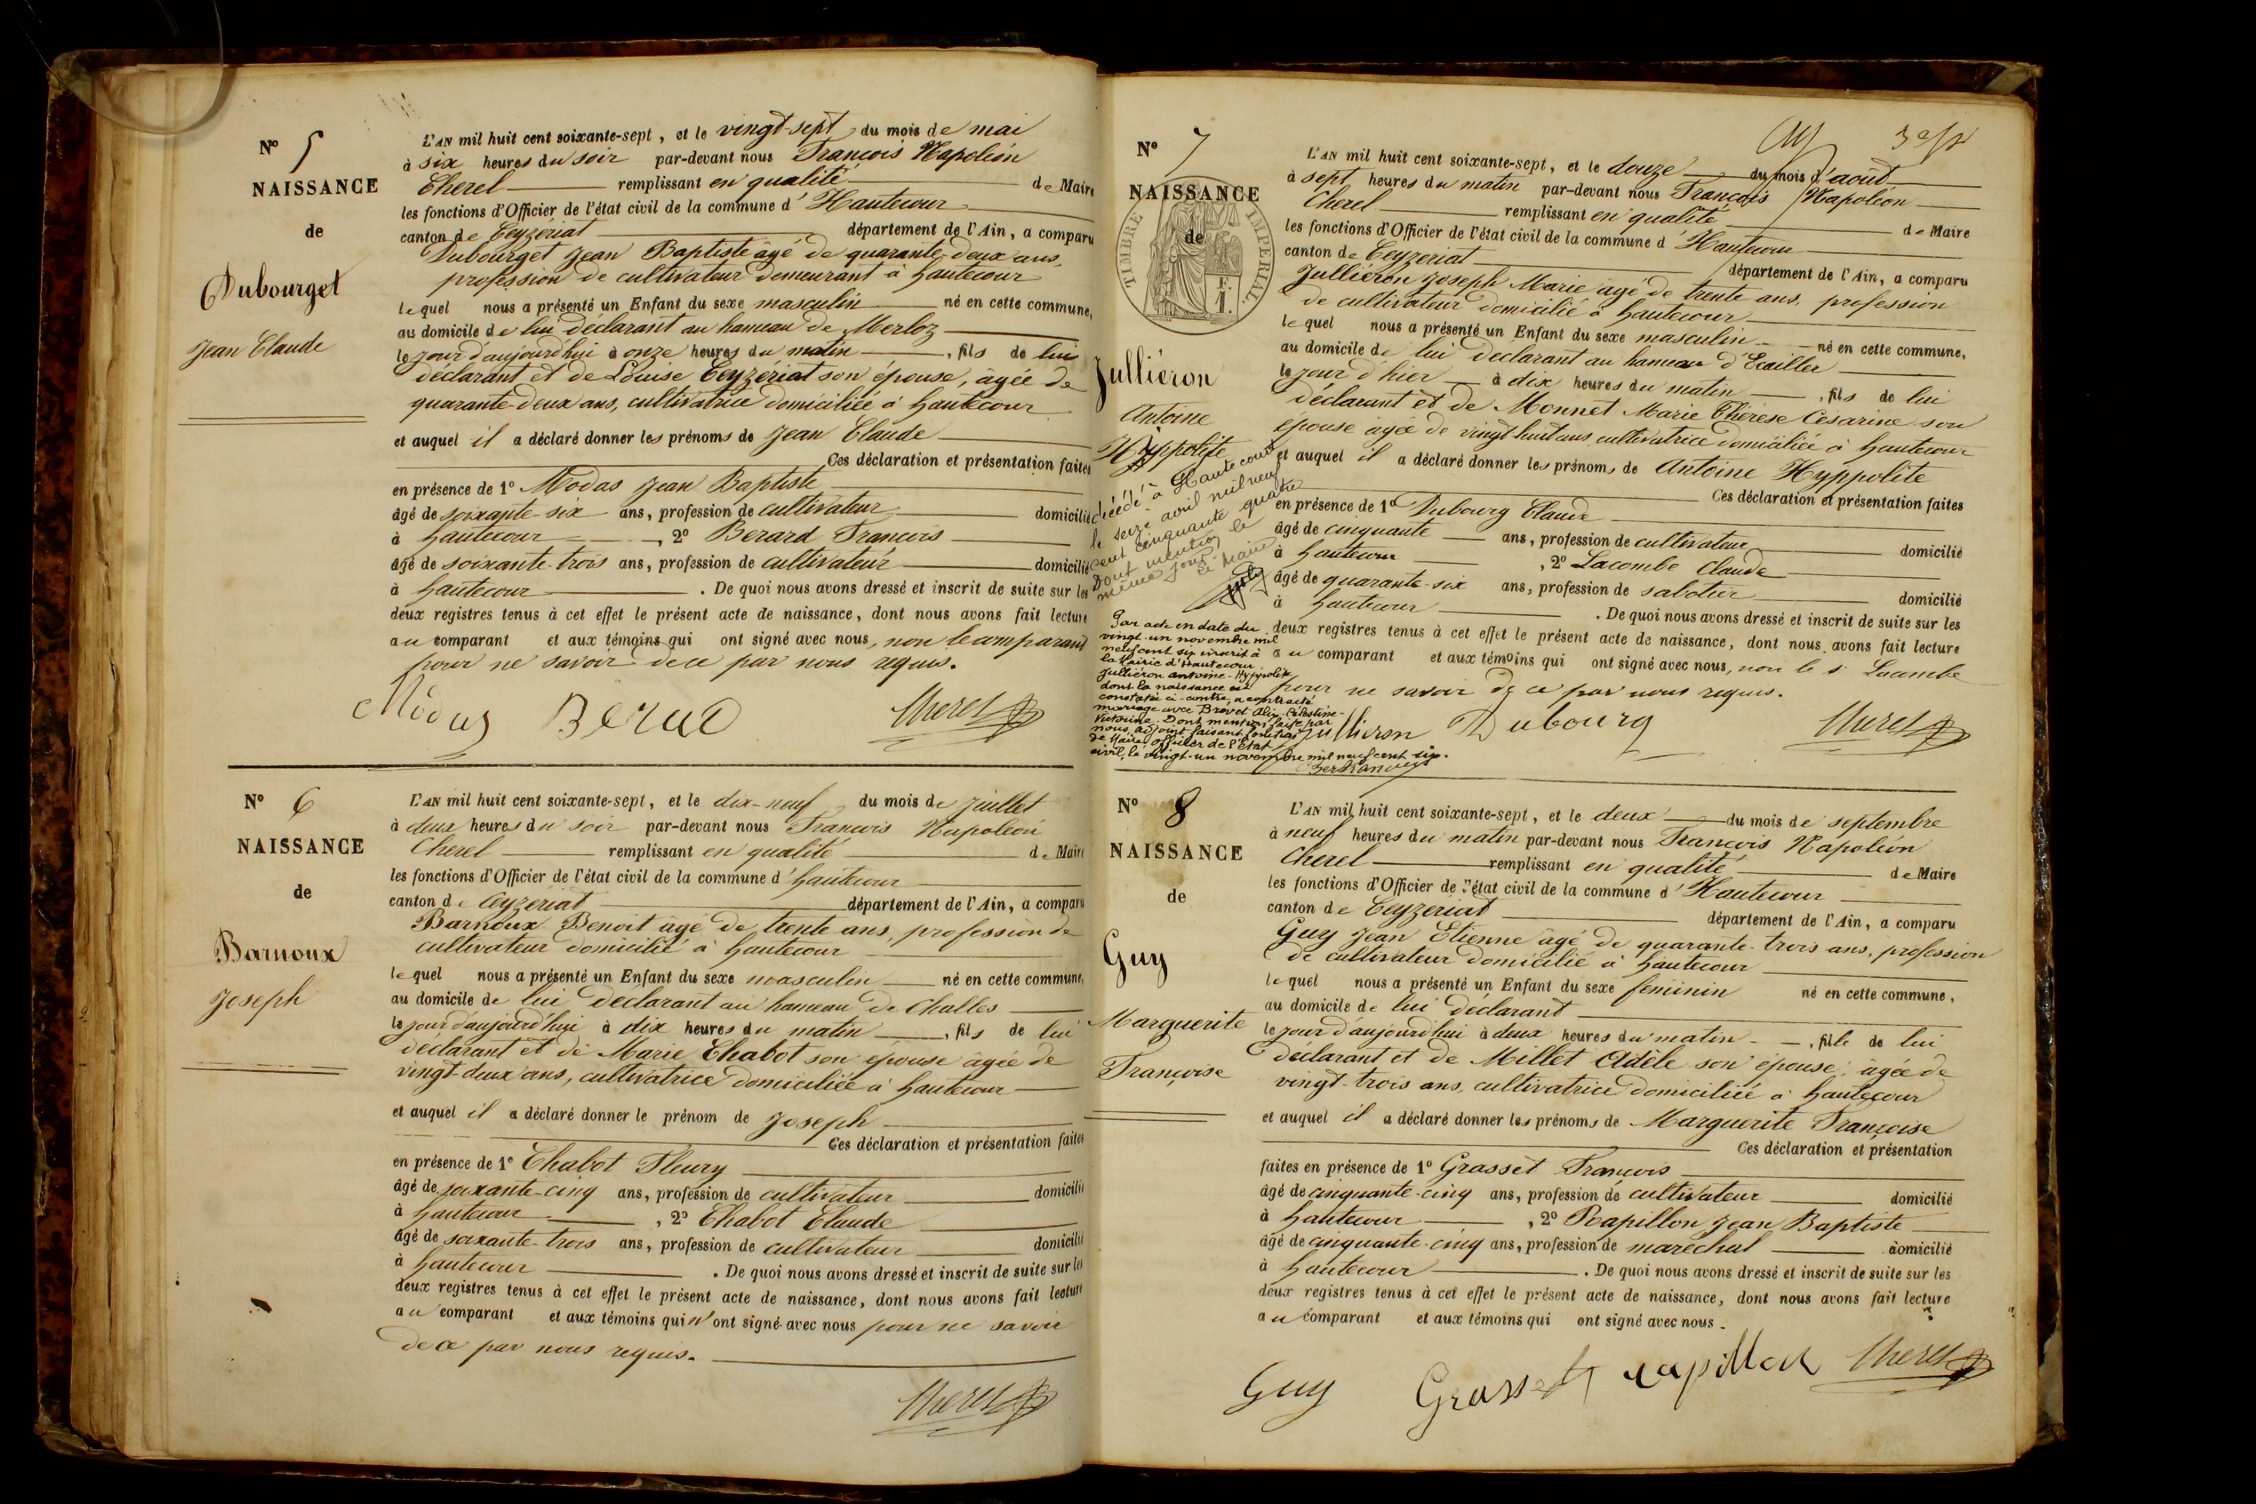 N° 5
NAISSANCE
de
Dubourget
Jean Claude
L'AN mil huit cent soixante-sept, et le vingt-sept du mois de mai
à six heures du soir par-devant nous François Napoléon
Cherel remplissant en qualité de Maire
les fonctions d'Officier de l'état civil de la commune d'Hautecour
canton de Ceyzériat département de l'Ain, a comparu
Dubourget Jean Baptiste âgé de quarante deux ans,
profession de cultivateur demeurant à hautecour
lequel nous a présenté un Enfant du sexe masculin né en cette commune,
au domicile de lui déclarant au hameau de Merloz
le jour d'aujourd'hui à onze heures du matin, fils de lui
déclarant et de Louise Ceyzériat son épouse, âgée de
quarante-deux ans, cultivatrice domiciliée à hautecour
et auquel il a déclaré donner les prénoms de Jean Claude
Ces déclaration et présentation faites
en présence de 1° Modas Jean Baptiste
âgé de soixante-six ans, profession de cultivateur domicilié
à hautecour, 2° Berard François
âgé de soixante-trois ans, profession de cultivateur domicilié
à hautecour. De quoi nous avons dressé et inscrit de suite sur les
deux registres tenus à cet effet le présent acte de naissance, dont nous avons fait lecture
au comparant et aux témoins qui ont signé avec nous, non le comparant
pour ne savoir de ce par nous requis.
Modas Berard Cherel
N° 6
NAISSANCE
de
Barnoux
Joseph
L'AN mil huit cent soixante-sept, et le dix-neuf du mois de juillet
à deux heures du soir par-devant nous François Napoléon
Cherel remplissant en qualité de Maire
les fonctions d'Officier de l'état civil de la commune d'hautecour
canton de Ceyzériat département de l'Ain, a comparu
Barnoux Benoit âgé de trente ans, profession de
cultivateur domicilié à hautecour
lequel nous a présenté un Enfant du sexe masculin né en cette commune,
au domicile de lui déclarant au hameau de Challes
le jour d'aujourd'hui à dix heures du matin, fils de lui
déclarant et de Marie Chabot son épouse âgée de
vingt-deux ans, cultivatrice domiciliée à hautecour
et auquel il a déclaré donner le prénom de Joseph
Ces déclaration et présentation faites
en présence de 1° Chabot Fleury
âgé de soixante-cinq ans, profession de cultivateur domicilié
à hautecour, 2° Chabot Claude
âgé de soixante-trois ans, profession de cultivateur domicilié
à hautecour. De quoi nous avons dressé et inscrit de suite sur les
deux registres tenus à cet effet le présent acte de naissance, dont nous avons fait lecture
au comparant et aux témoins qui n'ont signé avec nous pour ne savoir
de ce par nous requis.
Cherel
N° 7
NAISSANCE
de
TIMBRE IMPERIAL.
Jullieron
Antoine
Hyppolite
décédé à Hautecour
le seize avril mil neuf
cent cinquante quatre
Dont mention le
même jour
Le Maire
Par acte en date du
vingt-un novembre mil
neuf cent six inscrit à
la Mairie d'Hautecour
Jullieron Antoine-Hyppolite
dont la naissance est
constatée ci-contre, a contracté
mariage avec Brevet Célestine-
Victorine. Dont mention faite par
nous, adjoint faisant fonction
de Maire officier de l'état
civil, le vingt-un novembre mil neuf cent six.
L'AN mil huit cent soixante-sept, et le douze du mois d'août
à sept heures du matin par-devant nous François Napoléon
Cherel remplissant en qualité de Maire
les fonctions d'Officier de l'état civil de la commune d'Hautecour
canton de Ceyzériat département de l'Ain, a comparu
Jullieron Joseph Marie âgé de trente ans, profession
de cultivateur domicilié à hautecour
lequel nous a présenté un Enfant du sexe masculin né en cette commune,
au domicile de lui déclarant au hameau d'Ecuiller
le jour d'hier à dix heures du matin, fils de lui
déclarant et de Monnet Marie Thérèse Césarine son
épouse âgée de vingt huit ans cultivatrice domiciliée à hautecour
et auquel il a déclaré donner les prénoms de Antoine Hyppolite
Ces déclaration et présentation faites
en présence de 1° Dubourg Claude
âgé de cinquante ans, profession de cultivateur domicilié
à hautecour, 2° Lacombe Claude
âgé de quarante-six ans, profession de sabotier domicilié
à hautecour. De quoi nous avons dressé et inscrit de suite sur les
deux registres tenus à cet effet le présent acte de naissance, dont nous avons fait lecture
au comparant et aux témoins qui ont signé avec nous, non le s. Lacombe
pour ne savoir de ce par nous requis.
Jullieron Dubourg Cherel
N° 8
NAISSANCE
de
Guy
Marguerite
Françoise
L'AN mil huit cent soixante-sept, et le deux du mois de septembre
à neuf heures du matin par-devant nous François Napoléon
Cherel remplissant en qualité de Maire
les fonctions d'Officier de l'état civil de la commune d'Hautecour
canton de Ceyzériat département de l'Ain, a comparu
Guy Jean Etienne âgé de quarante-trois ans, profession
de cultivateur domicilié à hautecour
lequel nous a présenté un Enfant du sexe feminin né en cette commune,
au domicile de lui déclarant
le jour d'aujourd'hui à deux heures du matin, fille de lui
déclarant et de Millet Adèle son épouse, âgée de
vingt-trois ans, cultivatrice domiciliée à hautecour
et auquel il a déclaré donner les prénoms de Marguerite Françoise
Ces déclaration et présentation
faites en présence de 1° Grasset François
âgé de cinquante-cinq ans, profession de cultivateur domicilié
à hautecour, 2° Papillon Jean Baptiste
âgé de cinquante-cinq ans, profession de maréchal domicilié
à hautecour. De quoi nous avons dressé et inscrit de suite sur les
deux registres tenus à cet effet le présent acte de naissance, dont nous avons fait lecture
au comparant et aux témoins qui ont signé avec nous.
Guy Grasset Papillon Cherel